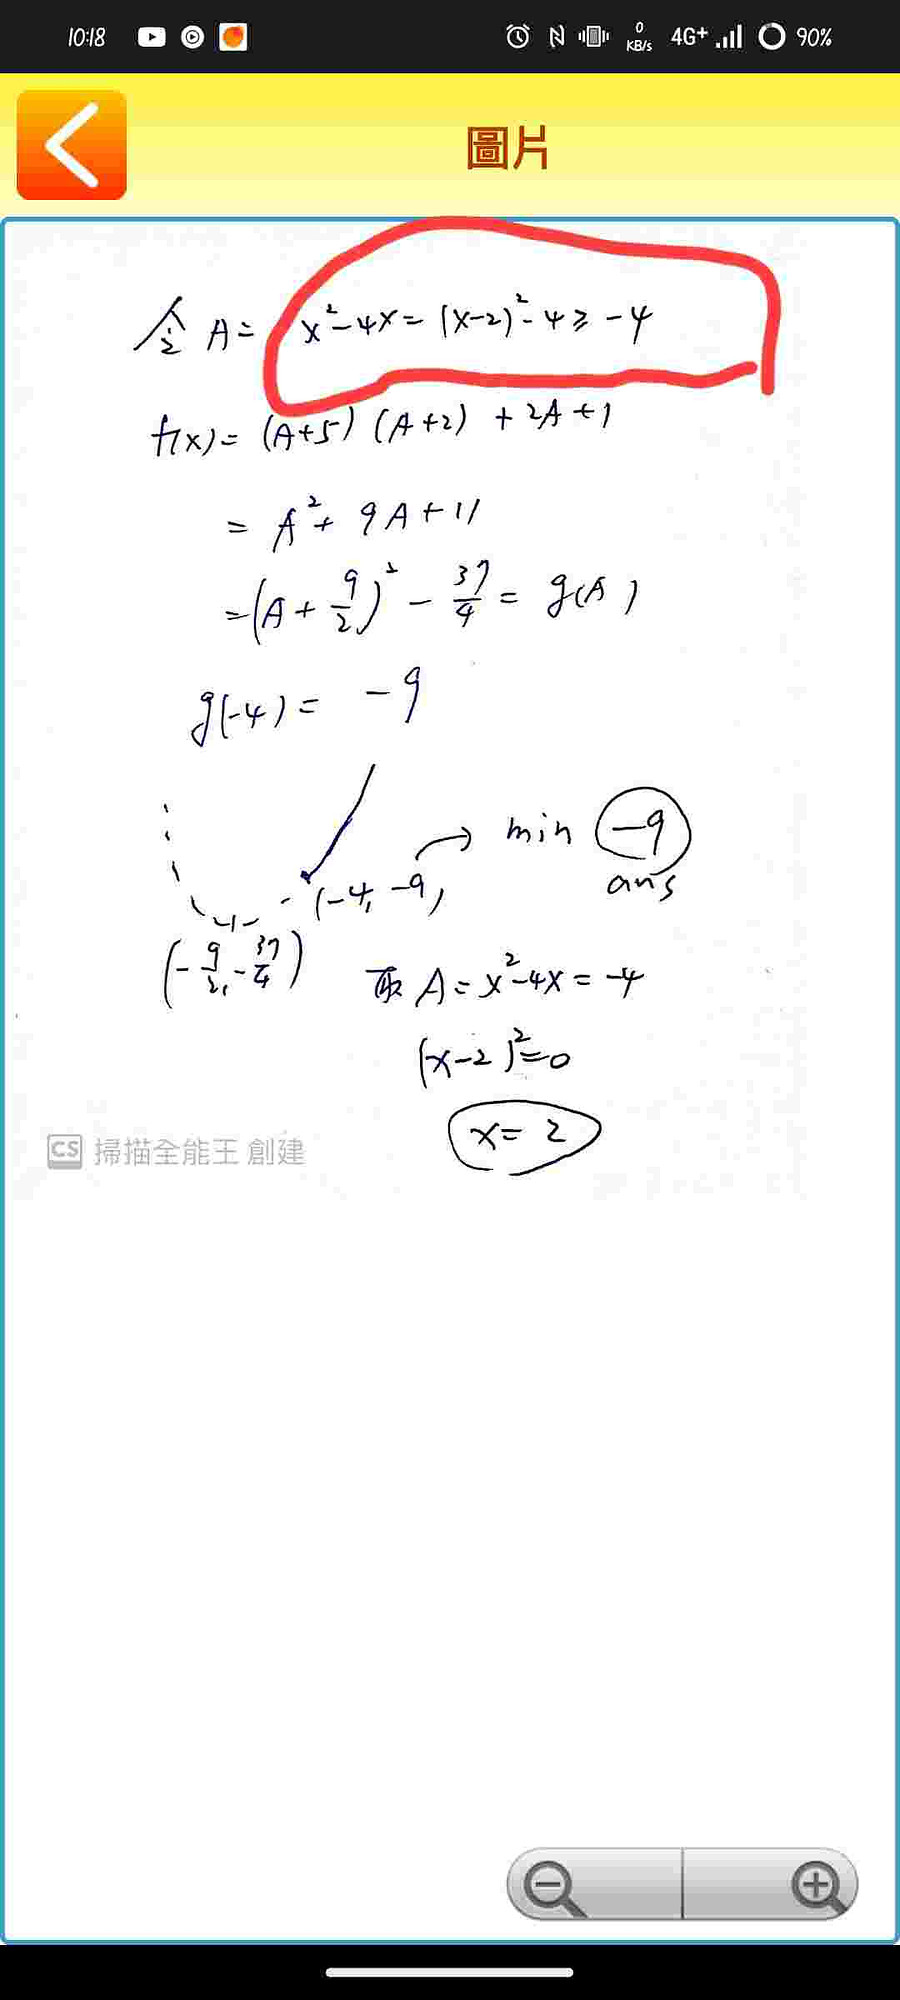 10:18 0 KB/s 4G+ 90%
圖片
令 A = x²-4x = (x-2)²-4 ≥ -4
f(x) = (A+5)(A+2) + 2A+1
= A² + 9A + 11
= (A + 9/2)² - 37/4 = g(A)
g(-4) = -9
(-4, -9) → min -9
ans
(-9/2, -37/4)
取 A = x²-4x = -4
(x-2)² = 0
x = 2
CS 掃描全能王 創建